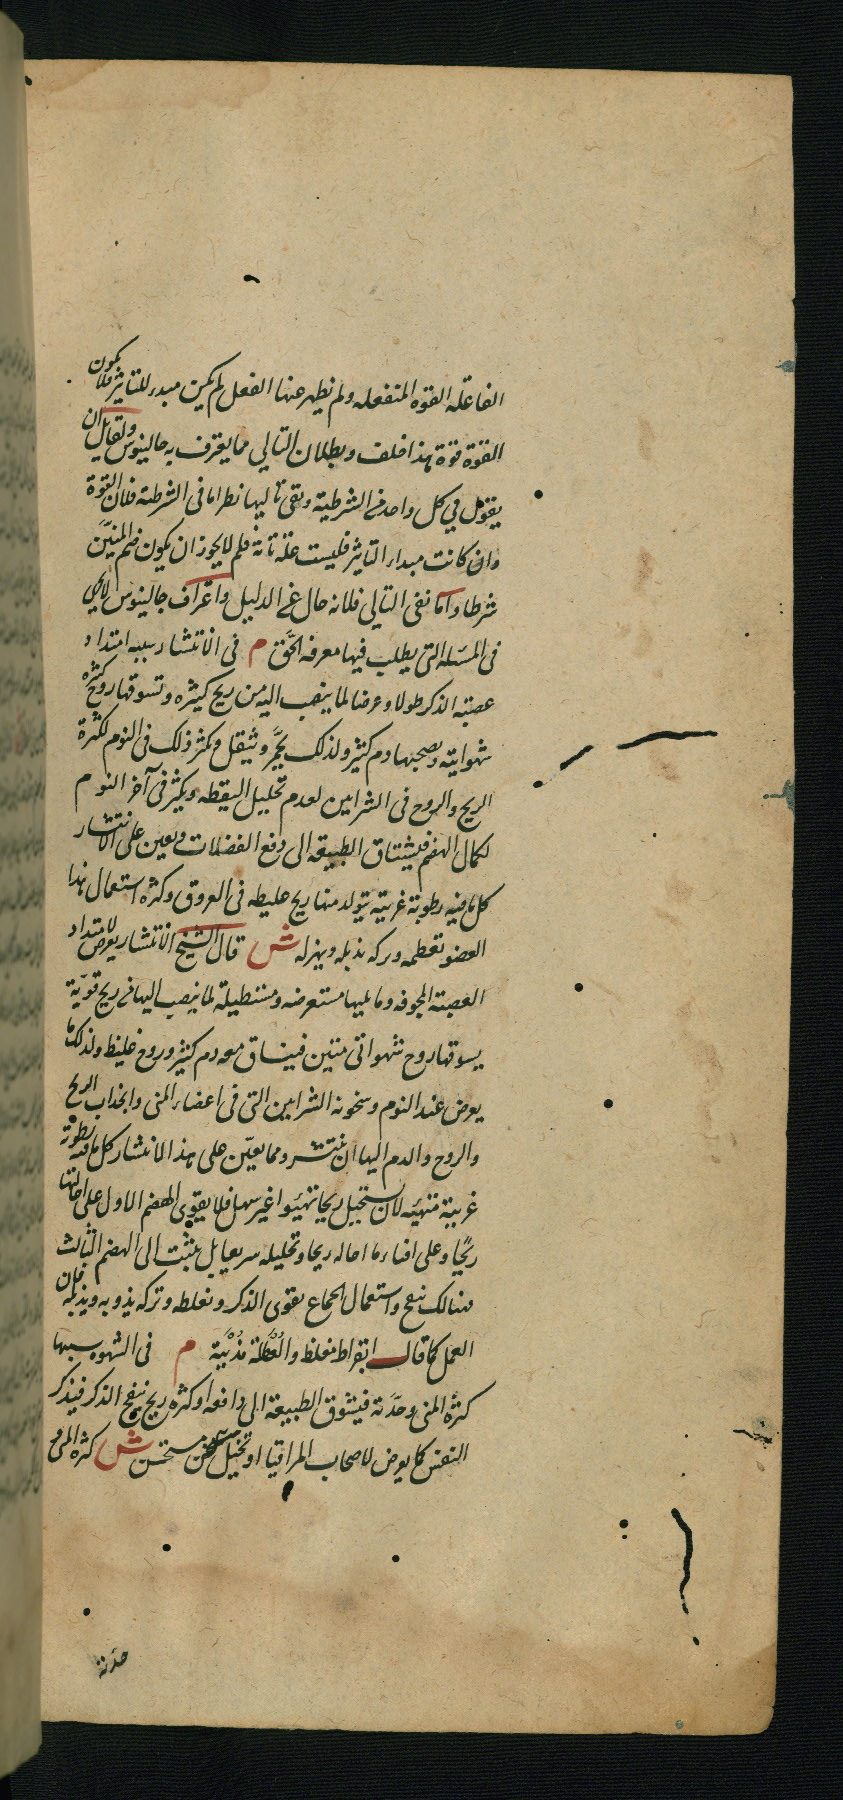 الفاعله القوه المنفعله ولم يظهر عنها الفعل لم يكن مبدء للتاثير فلا يكون
القوة قوة هذا خلف وبطلان التالي مما يعترف به جالينوس ولقايل ان
يقول في كل واحد من الشرطية ونفي تاليها نظر اما في الشرطية فلان القوة
وان كانت مبداء التاثير فليست علة تامة فلم لا يجوز ان يكون ضم المنيّين
شرطا واما نفى التالي فلانه خال عن الدليل واعتراف جالينوس لا يكفي
فى المسئله التى يطلب فيها معرفه الحق م فى الانتشار سببه امتداد
عصبة الذكر طولا وعرضا لما ينصب اليه من ريح كثيره وتسوقها روح كثيره
شهوانية ويصحبها دم كثير ولذلك يحمر ويثقل ويكثر ذلك فى النوم لكثرة
الريح والروح فى الشرايين لعدم تحليل اليقظه ويكثر فى آخر النوم
لكمال الهضم فيشتاق الطبيعه الى دفع الفضلات ويعين على الانتشار
كل ما فيه رطوبة غريبة يتولد منها ريح غليظه فى العروق وكثره استعمال هذا
العضو تعظمه وتركه يذبله ويهزله ش قال الشيخ الانتشار يعرض لامتداد
العصبة المجوفه وما يليها مستعرضه ومستطيلة لما ينصب اليها من ريح قوية
يسوقها روح شهوانى متين فينساق معه دم كثير وروح غليظ ولذلك ما
يعرض عند النوم وسخونة الشرايين التى فى اعضاء المنى وانجذاب الريح
والروح والدم اليها ان ينتشر ومما يعين على هذا الانتشار كل ما فيه رطوبة
غريبة متهيئه لان يستحيل ريحا تهيئوا غير سهل فلا يقوى الهضم الاول على احالتها
ريحا وعلى افناء ما احاله ريحا وتحليله سريعا بل يثبت الى الهضم الثالث
فهنالك ينفخ واستعمال الجماع يقوى الذكر ويغلظه وتركه يذوبه ويذبله فان
العمل كما قال ابقراط مغلظ والعطلة مذيبة م فى الشهوه سببها
كثرة المنى وحدته فيشوق الطبيعة الى دافعه او كثره ريح ينفخ الذكر فيذكر
النفس كما يعرض لاصحاب المراقيا او تخيل مستحسن ش كثره المنى و
حدته